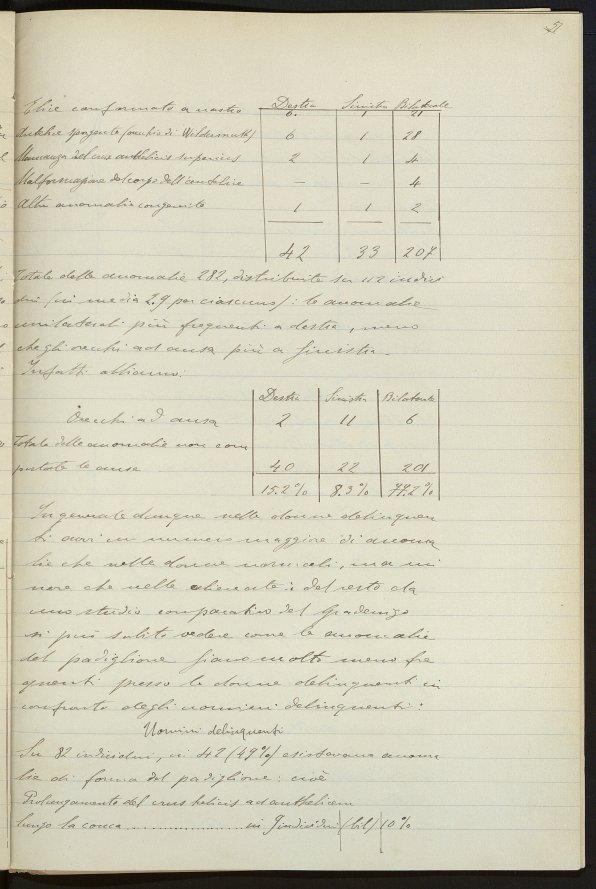 51
Destra Sinistra Bilaterale
Elice conformato a nastro 6. 1 21
Antelice sporgente (orecchio di Wildermuth) 6 1 28
Mancanza del crus anthelicis superius 2 1 4
Malformazione del corpo dell'antelice — — 4
Altre anomalie congenite 1 1 2
42 33 207
Totale delle anomalie 282, distribuite su 112 indivi
dui (in media 2,9 per ciascuno): le anomalie
unilaterali più frequenti a destra, meno
che gli orecchi ad ansa più a sinistra.
Infatti abbiamo:
Destra Sinistra Bilaterale
Orecchi ad ansa 2 11 6
Totale delle anomalie non com
putate le anse 40 22 201
15.2% 8.3% 77.2%
In generale dunque nelle donne delinquen
ti avvi un numero maggiore di anoma
lie che nelle donne normali, ma mi
nore che nelle alienate: del resto da
uno studio comparativo del Gradenigo
si può subito vedere come le anomalie
del padiglione siano molto meno fre
quenti presso le donne delinquenti in
confronto degli uomini delinquenti:
Uomini delinquenti
Su 82 individui, in 42 (49%) esistevano anoma
lie di forma del padiglione: cioè
Prolungamento del crus helicis ad anthelicem
lungo la conca .................. in 9 individui (bil) 10%